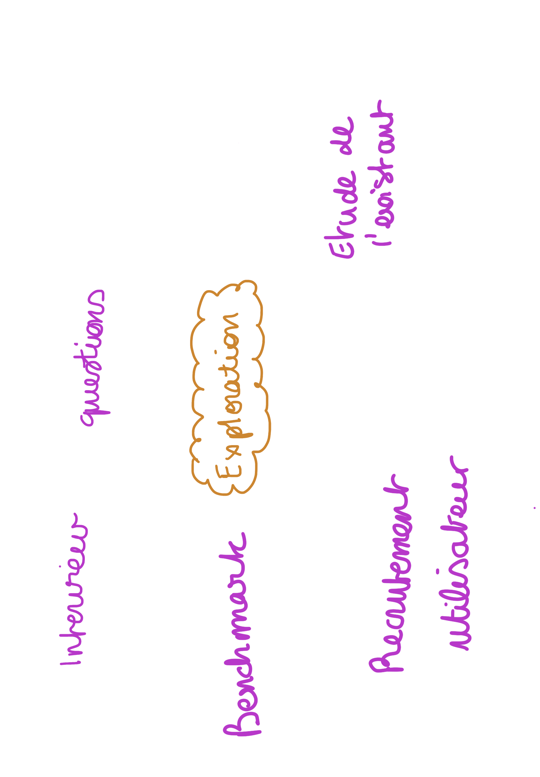 Interview
questions
Benchmark
Exploration
Etude de
l'existant
Recrutement
utilisateur